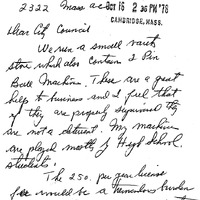 2322 Mass Ave Oct 16 2 36 PM '78
CAMBRIDGE, MASS.
Dear City Council
We run a small variety
store which also contains 2 Pin
Ball Machines. These are a great
help to business and I feel that
if they are properly supervised they
are not a detriment. My machines
are played mostly by High School
students.
The 250. per year license
fee would be a tremendous burden